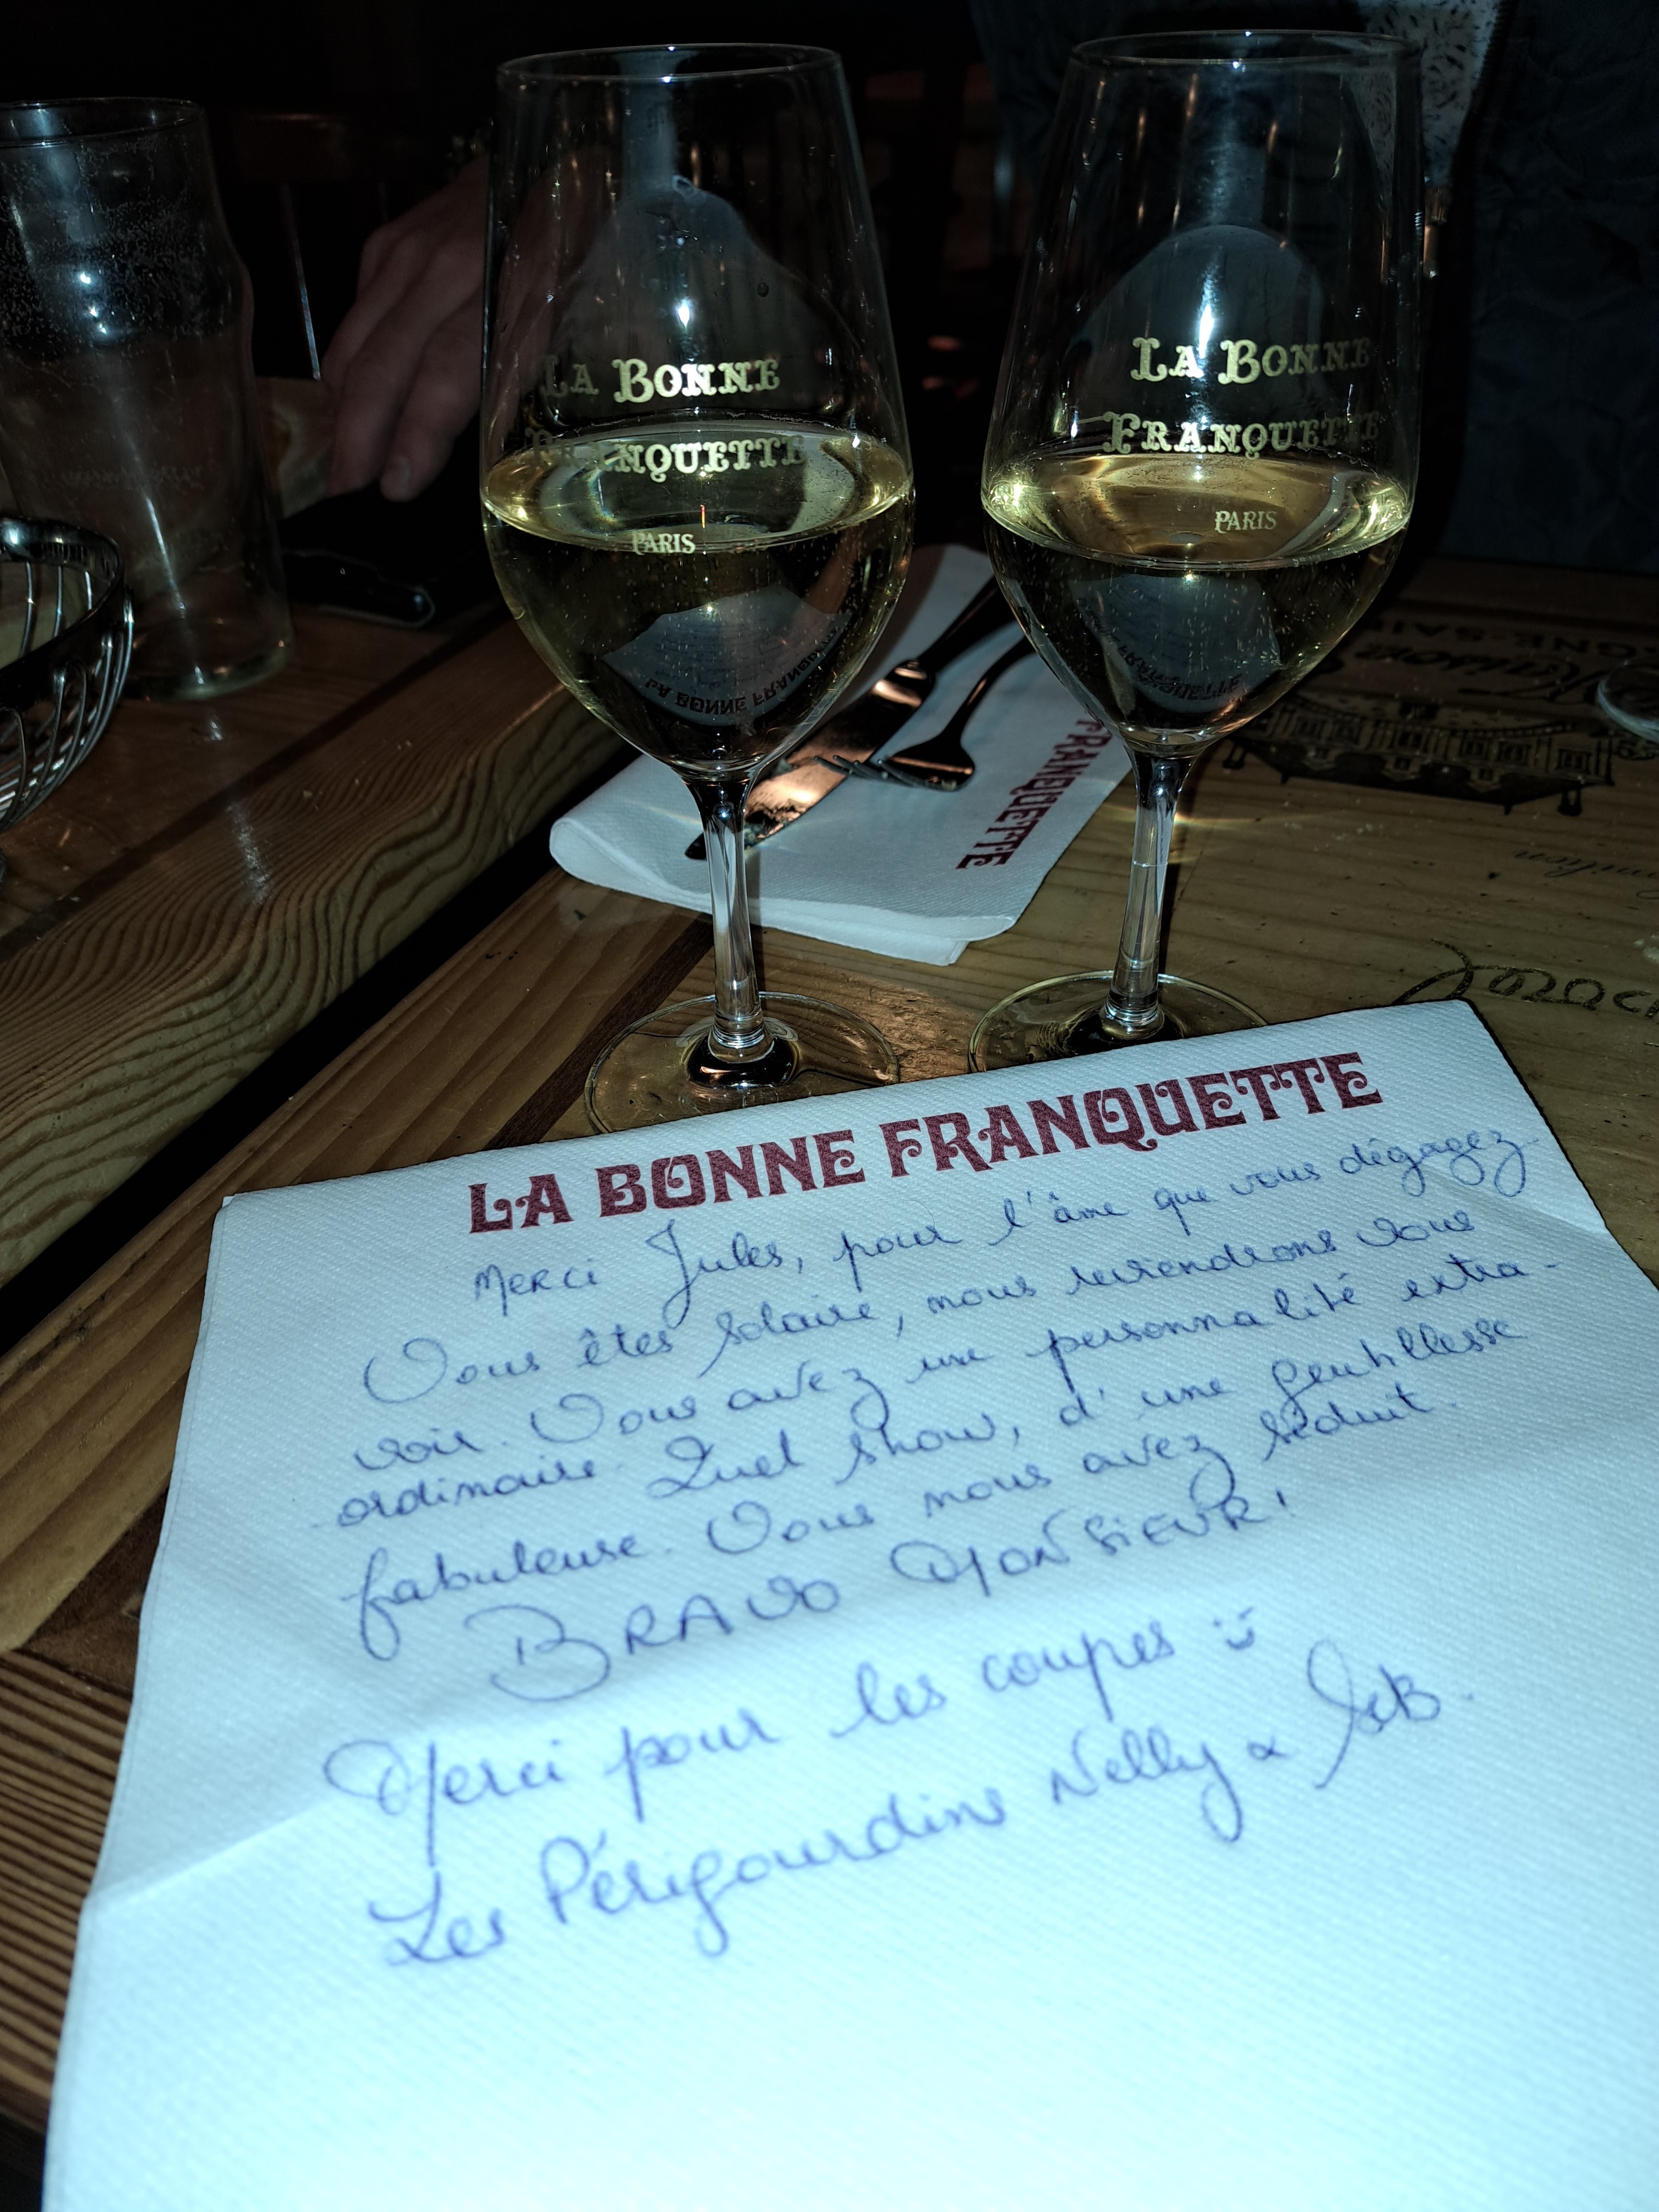 LA BONNE
FRANQUETTE
PARIS
LA BONNE
FRANQUETTE
PARIS
FRANQUETTE
LA BONNE FRANQUETTE
Merci Jules, pour l'âme que vous dégagez
Vous êtes solaire, nous reviendrons vous
voir. Vous avez une personnalité extra-
ordinaire. Quel show, d'une gentillesse
fabuleuse. Vous nous avez séduit.
BRAVO MONSIEUR!
Merci pour les coupes :)
Les Périgourdins Nelly &